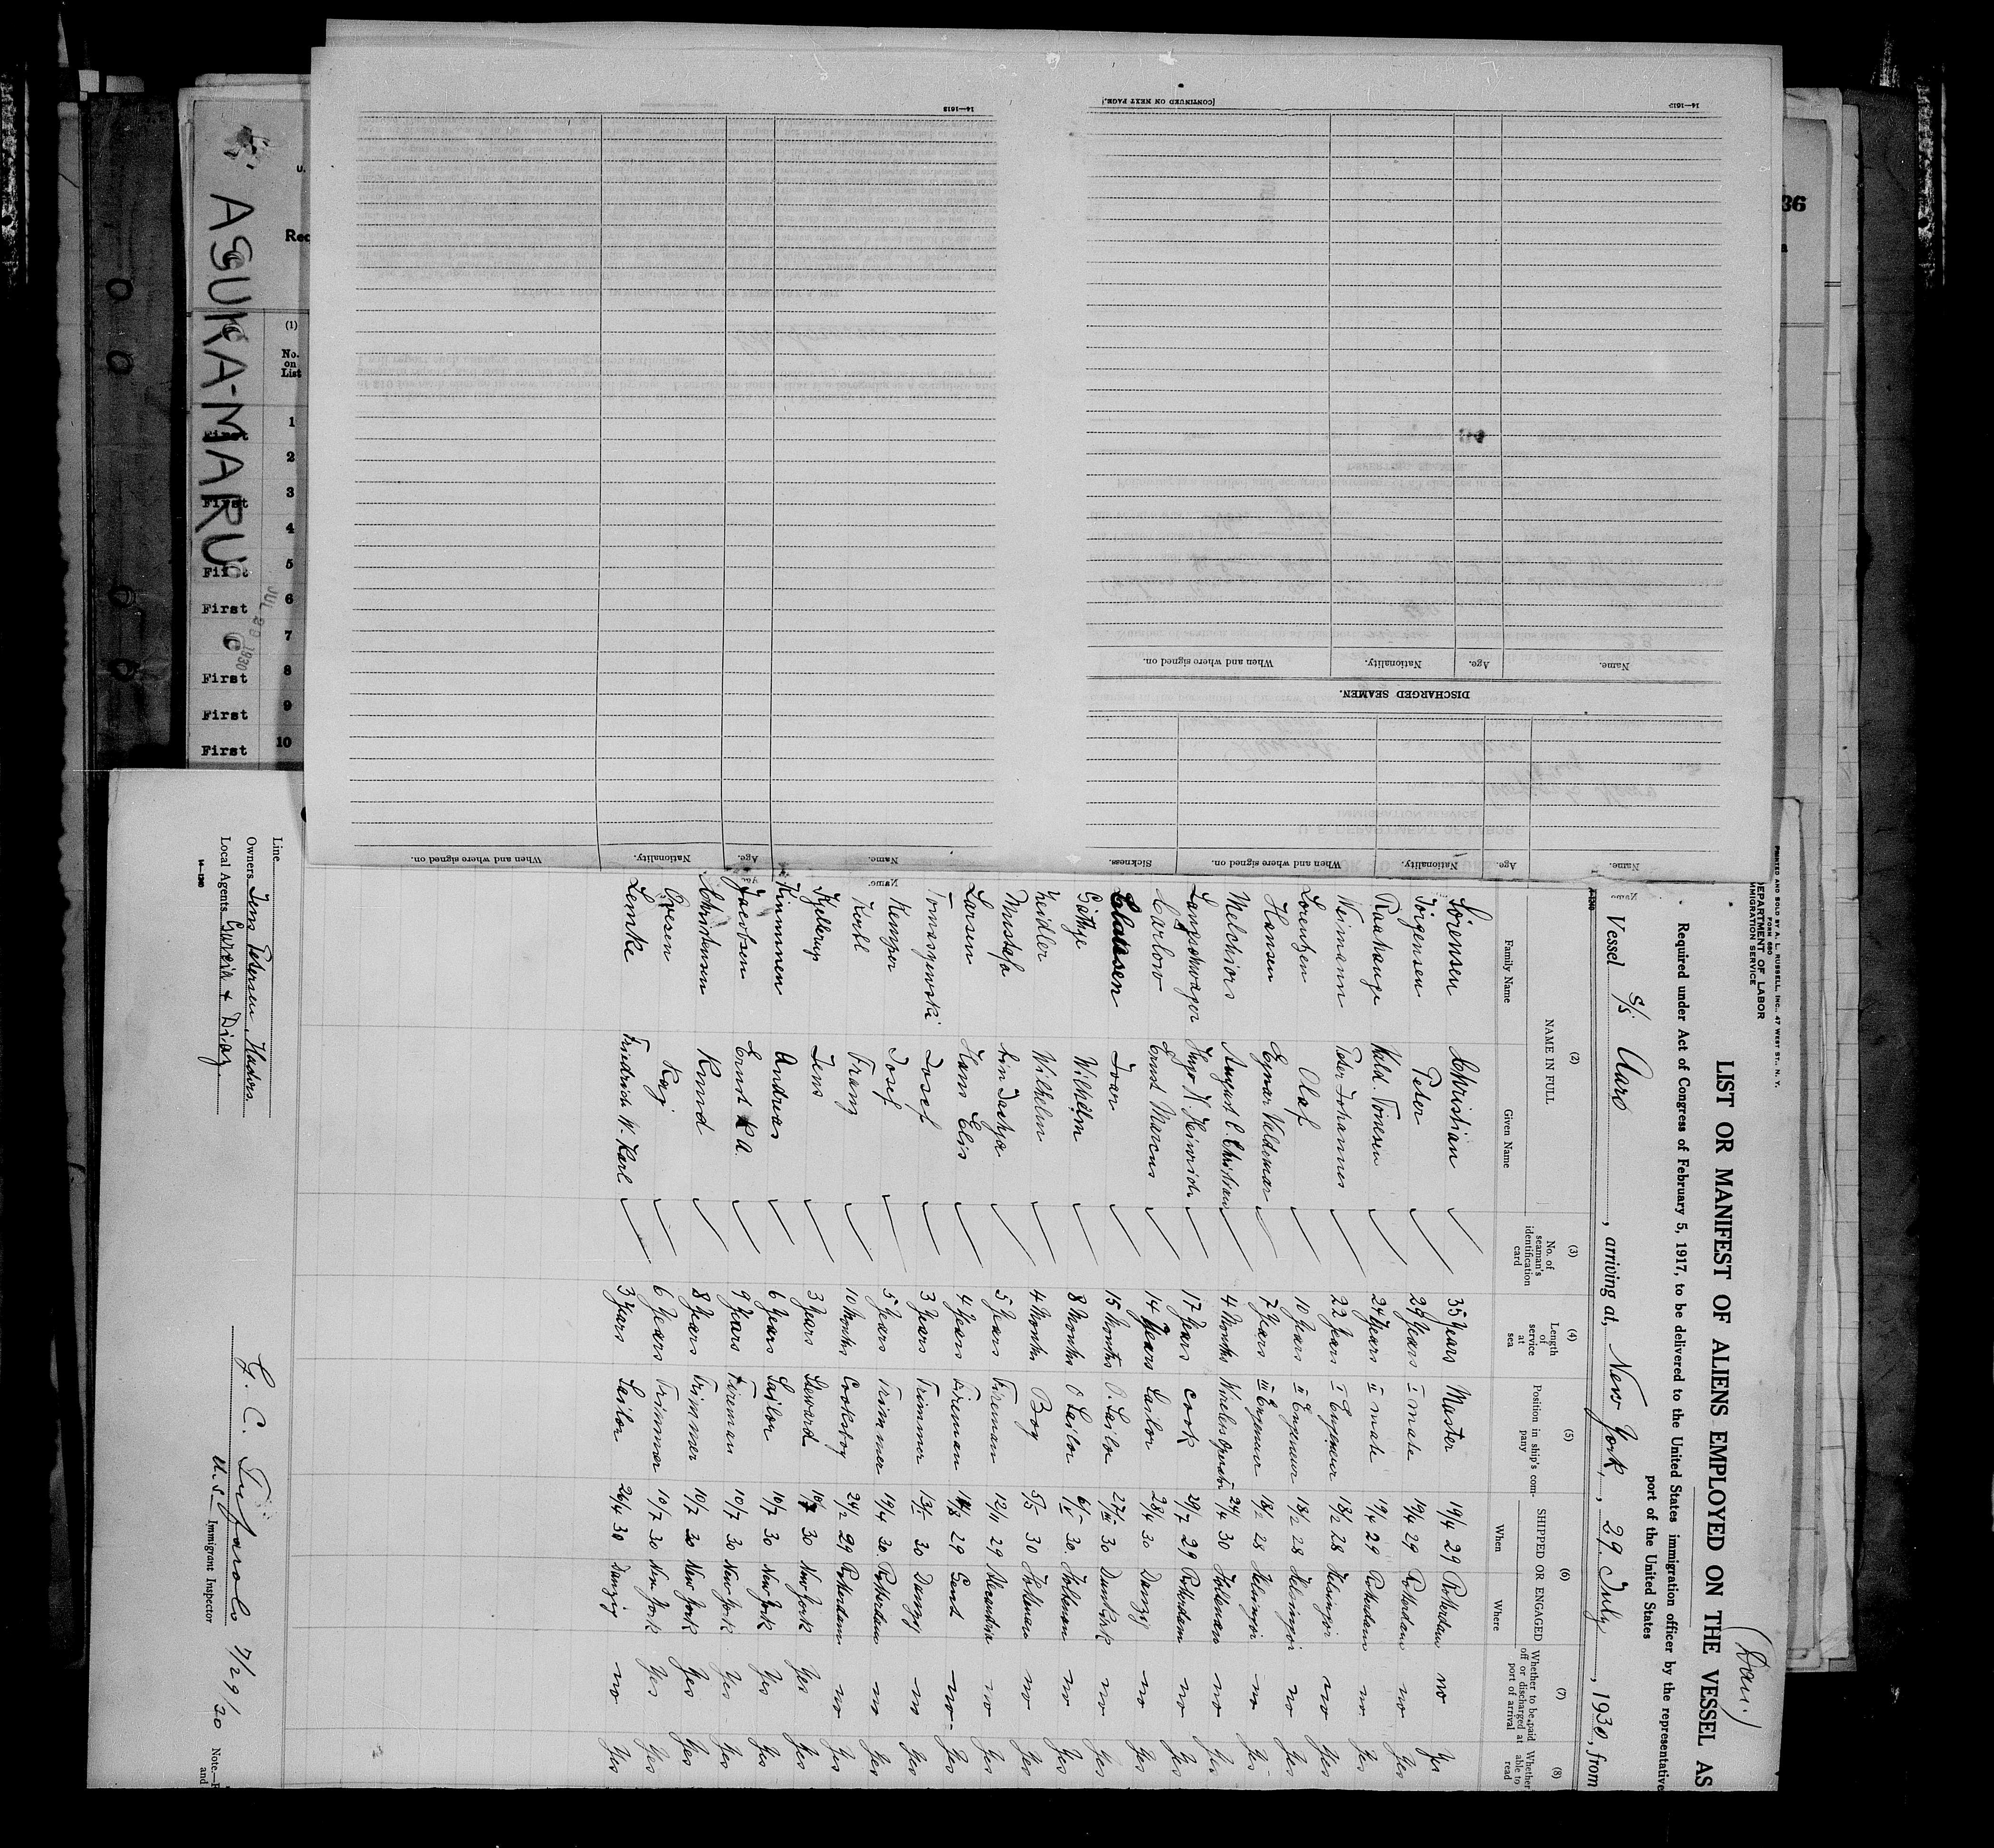 (Dan.)
PRINTED AND SOLD BY A. L. RUSSELL, INC., 47 WEST ST., N. Y.
FORM 680
DEPARTMENT OF LABOR
IMMIGRATION SERVICE
LIST OR MANIFEST OF ALIENS EMPLOYED ON THE VESSEL AS
Required under Act of Congress of February 5, 1917, to be delivered to the United States immigration officer by the representative
port of the United States
Vessel S/S Aarö, arriving at New York, 29 July, 1930, from
(2) (3) (4) (5) (6) (7) (8)
NAME IN FULL
Family Name Given Name
No. of seaman's identification card
Length of service at sea
Position in ship's company
SHIPPED OR ENGAGED
When Where
Whether to be paid off or discharged at port of arrival
Whether able to read
Sörensen Christian 35 Years Master 19/4 29 Rotterdam no Yes
Jörgensen Peter 29 Years I mate 19/4 29 Rotterdam no Yes
Raahauge Vald. Tönesen 24 Years II mate 19/4 29 Rotterdam no Yes
Weimann Peter Johannes 22 Years I Engeneur 18/2 28 Helsingör no Yes
Lorentzen Olaf 10 Years II Engeneur 18/2 28 Helsingör no Yes
Hansen Ejnar Valdemar 7 Years III Engeneur 18/2 28 Helsingör no Yes
Melchiors August C. Christian 4 Months Wireless Operator 24/4 30 Holtenau no Yes
Langschwager Hugo H Heinrich 17 Years Cook 29/7 29 Rotterdam no Yes
Carlow Ernst Marcus 14 Years Sailor 28/4 30 Danzig no Yes
Clausen Ivar 15 Months O. Sailor 27/III 30 Dunkirk no Yes
Göttge Wilhelm 8 Months O Sailor 30. Holtenau no Yes
Zeidler Wilhelm 4 Months Boy 5/5 30 Holtenau no Yes
Mustafa bin Jachja 5 Years Fireman 12/11 29 Alexandria no Yes
Larsen Hans Elis 4 Years Fireman 29 Gent no Yes
Tomaszewski Josef 3 Years Trimmer 30 Danzig no Yes
Kemper Josef 5 Years Trimmer 19/4 30. Rotterdam no Yes
Korbl Franz 10 Months Cooksboy 24/2 29 Rotterdam no Yes
Kjellerup Jens 3 Years Steward 10/7 30 New York Yes Yes
Kimmen Andreas 6 Years Sailor 10/7 30 New York Yes Yes
Jacobsen Ernst A. 9 Years Fireman 10/7 30 New York Yes Yes
Christensen Knud 8 Years Trimmer 10/7 30 New York Yes Yes
Ovesen Kaj 6 Years Trimmer 10/7 30 New York Yes Yes
Lemke Friedrich W. Karl 3 Years Sailor 26/4 30 Danzig no Yes
Line
Owners Jens Petersen, Haders.
Local Agents Garcia & Diaz
14—1240
U. S. Immigrant Inspector
7/29/30
Note.—
and
[CONTINUED ON NEXT PAGE.]
14—1613
14—1613
Name. Age. Nationality. When and where signed on.
DISCHARGED SEAMEN.
Name. Age. Nationality. When and where signed on. Sickness.
Name. Age. Nationality. When and where signed on.
ASUKA-MARU
JUL 29 1930
U.
Rec
(1)
No. on List
1
2
First 3
4
First 5
First 6
7
First 8
First 9
First 10
36